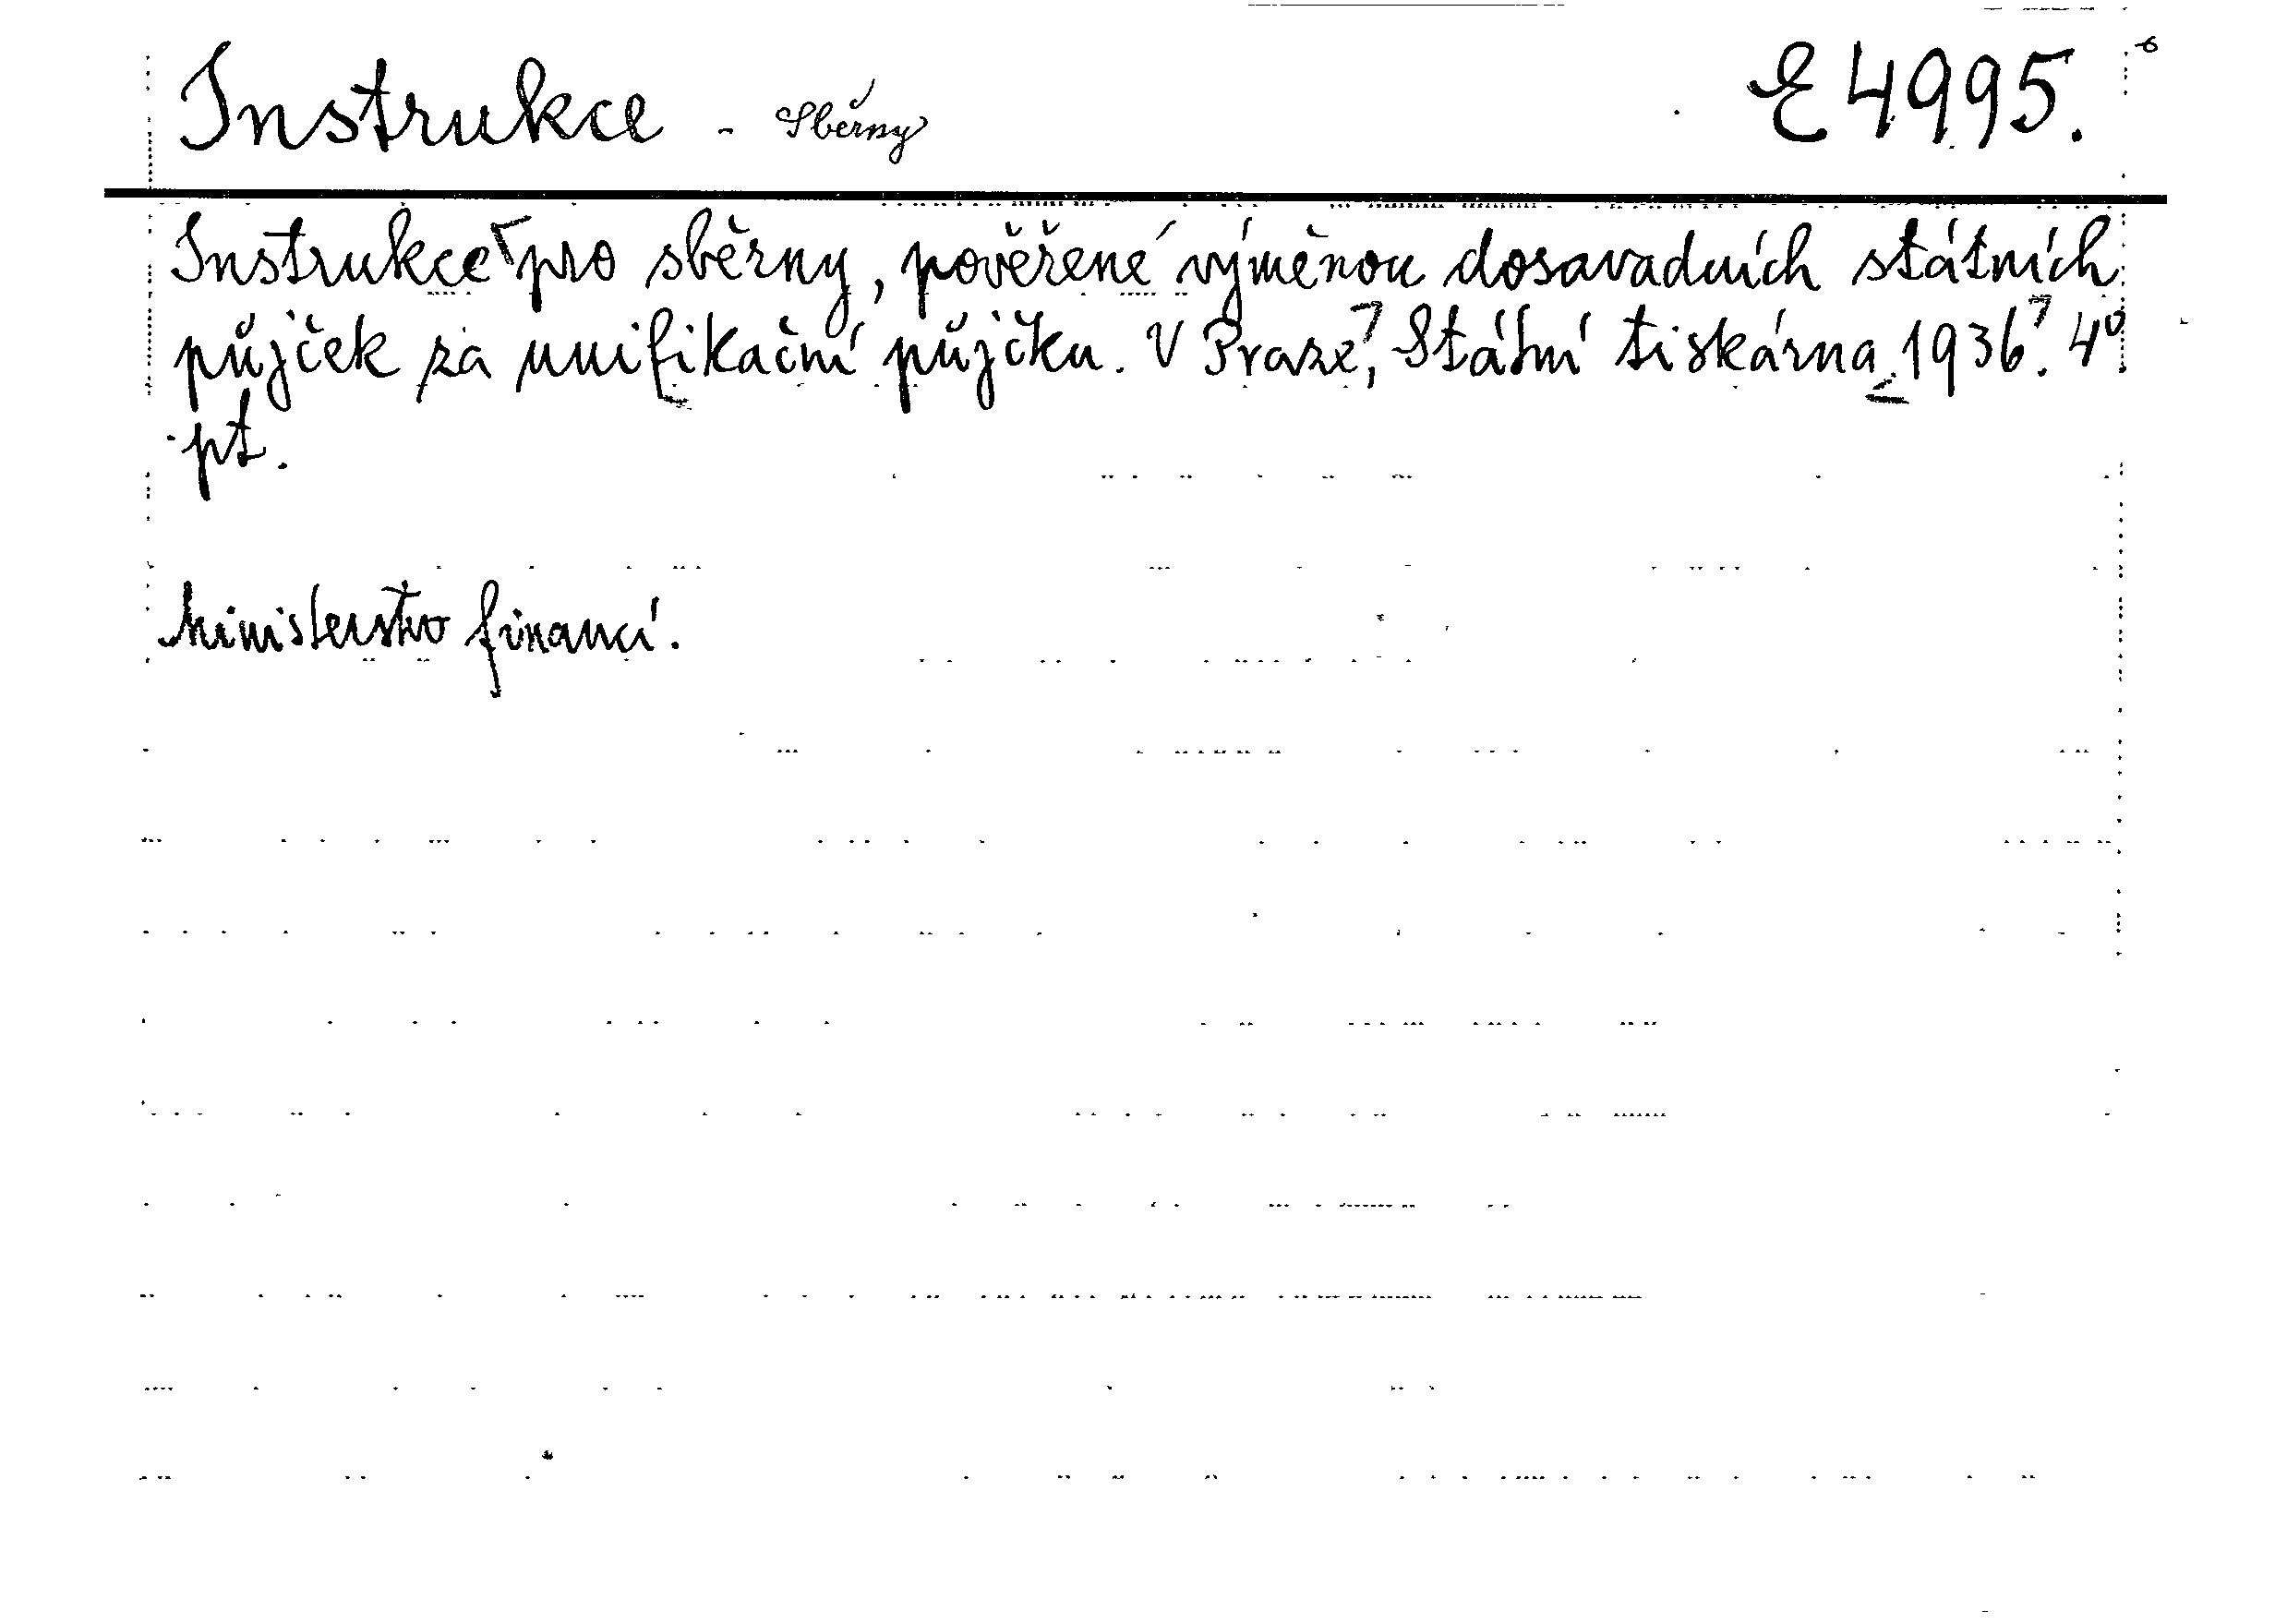 Instrukce - Sběrny E 4995.
Instrukce pro sběrny, pověřené výměnou dosavadních státních
půjček za unifikační půjčku. V Praze, Státní tiskárna 1936. 4°
pt.
Ministerstvo financí.